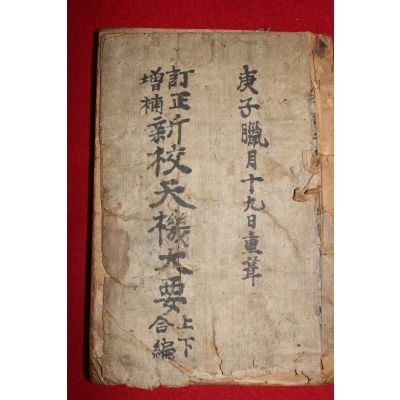 庚子臘月十九日重葺
訂正增補新校天機大要上下合編